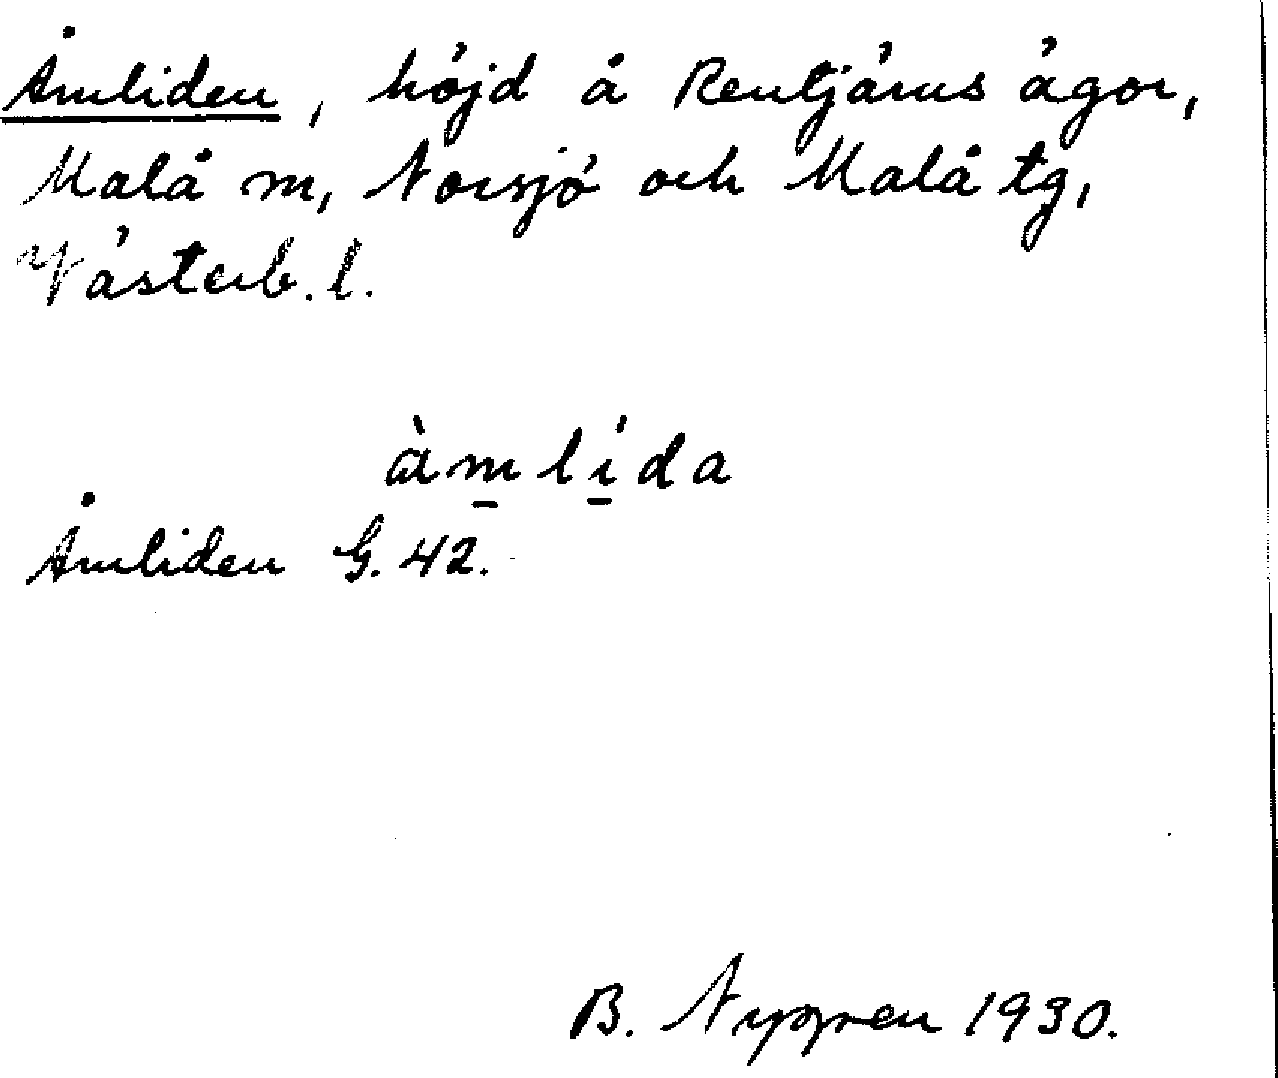 Åmliden, höjd å Rentjärns ägor,
Malå m, Norsjö och Malå tg,
Västerb. l.
àmlída
Åmliden G. 42.
B. Nygren 1930.